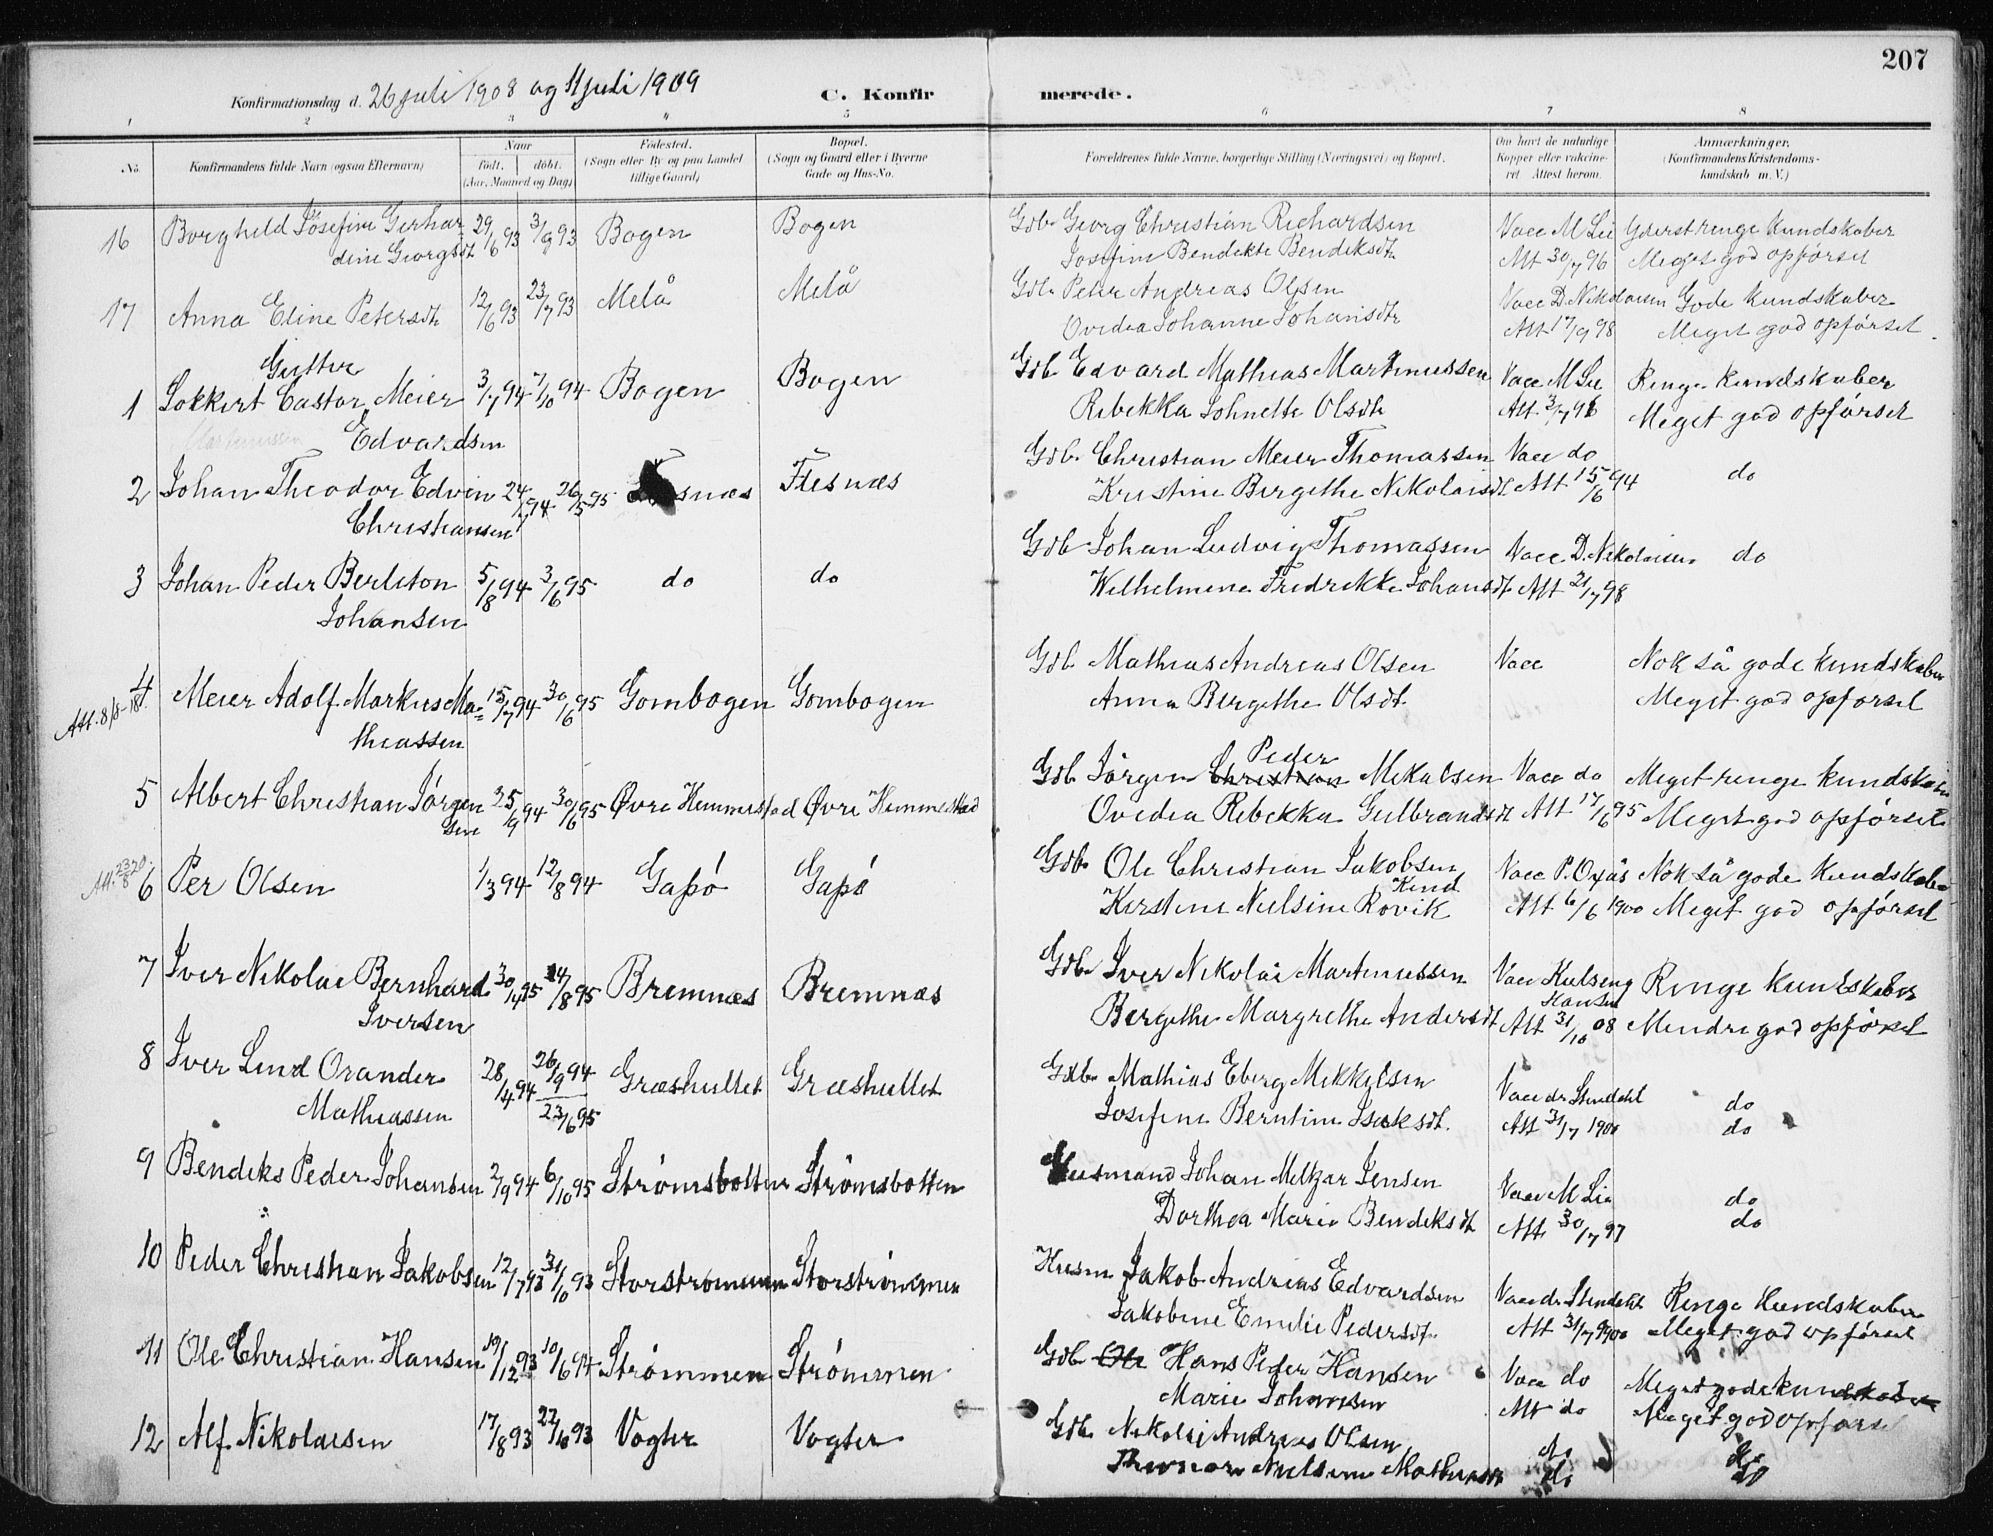 207
Konfirmationsdag d. 26 juli 1908 og 11 juli 1909 C. Konfir merede.
1 2 3 4 5 6 7 8
No. Konfirmandens fulde Navn (ogsaa Efternavn) Naar født. døbt. (Aar, Maaned og Dag) Fødested. (Sogn eller By og paa Landet tillige Gaard) Bopæl. (Sogn og Gaard eller i Byerne Gade og Hus-No. Forældrenes fulde Navne, borgerlige Stilling (Næringsvei) og Bopæl. Om havt de naturlige Kopper eller vakcineret. Attest herom. Anmærkninger. (Konfirmandens Kristendomskundskab m. V.)
16 Borghild Josefine Gerhar 29/6 93 3/9 93 Bogen Bogen Gdb. Georg Christian Richardsen Vacc M Lie Yderst ringe kundskaber
dine Georgsdt Josefine Bendikte Bendiksdtr Att 30/7 96 Meget god opførsel
17 Anna Eline Petersdtr 12/6 93 23/7 93 Melå Melå Gdb. Peter Andreas Olsen Vacc D. Nikolaisen Gode kundskaber
Ovedia Johanne Johansdtr Att 17/9 98 Meget god opførsel.
Gutter
1 Lokkert Castor Meier 3/7 94 7/10 94 Bogen Bogen Gdb. Edvard Mathias Martinussen Vacc M Lie Ringe kundskaber
Martinussen Edvardsen Rebekka Johnette Olsdtr Att 3/7 96 Meget god opførsel
2 Johan Theodor Edvin 24/7 94 26/5 95 snæs Flesnæs Gdb. Christian Meier Thomassen Vacc do do
Christiansen Kristine Bergithe Nikolaisdt Att 15/6 94
3 Johan Peder Berleton 5/8 94 3/6 95 do do Gdb Johan Ludvig Thomassen Vacc D. Nikolaisen do
Johansen Wilhelmine Fredrikke Johansdt Att 21/7 98
4 Meier Adolf Markus Ma= 15/7 94 30/6 95 Gombogen Gombogen Gdb Mathias Andreas Olsen Vacc Nok så gode kundskaber
Att. 8/5-18 theassen Anna Bergithe Olsdt. Meget god opførsel
5 Albert Christian Jørgen 25/9 94 30/6 95 Øvre Hemmestad Øvre Hemmestad Gdb Jørgen Christian Peder Mikalsen Vacc do Meget ringe kundskaber
sen Ovedia Rebekka Gulbrandsdt Att 17/6 95 Meget god opførsel
Att. 23/8 20.
6 Per Olsen 1/3 94 12/8 94 Gapø Gapø Gdb. Ole Christian Jakobsen Vacc P. Oxås Nok så gode kundskaber
Kirstine Nielsine Kind Rovik Att 6/6 1900 Meget god opførsel
7 Iver Nikolai Bernhard 30/4 95 14/8 95 Bremnæs Bremnæs Gdb. Iver Nikolai Martinussen Vacc Kulseng Hansen Ringe kundskaber
Iversen Bergithe Margrethe Andersdt Att 31/10 08 Mindre god opførsel
8 Iver Lind Orander 28/4 94 26/9 94 Græshullet Græshullet Gdb. Mathias Eberg Mikkelsen Vacc dr Stendahl do
Mathiassen 23/6 95 Josefine Berntine Isaksdt. Att 31/7 1900 do
9 Bendiks Peder Johansen 2/9 94 6/10 95 Strømsbotten Strømsbotten Husmand Johan Meltzar Jensen Vacc M Lie do
Dorthea Marie Bendiksdt Att 30/7 97 do
10 Peder Christian Jakobsen 12/7 93 31/10 93 Storstrømmen Storstrømmen Husm Jakob Andreas Edvardsen Vacc dr Stendahl Ringe kundskaber
Jakobine Emilie Pedersdt. Att 31/7 1900 Meget god opførsel
11 Ole Christian Hansen 19/12 93 10/6 94 Strømmen Strømmen Gdb Ole Hans Peder Hansen Vacc do Meget gode kundskaber
Marie Johansen Att do Meget god opførsel
12 Alf Nikolaisen 17/8 93 22/10 93 Vogter Vogter Gdb. Nikolai Andreas Olsen do do
Nielsine Mathiasdt do do